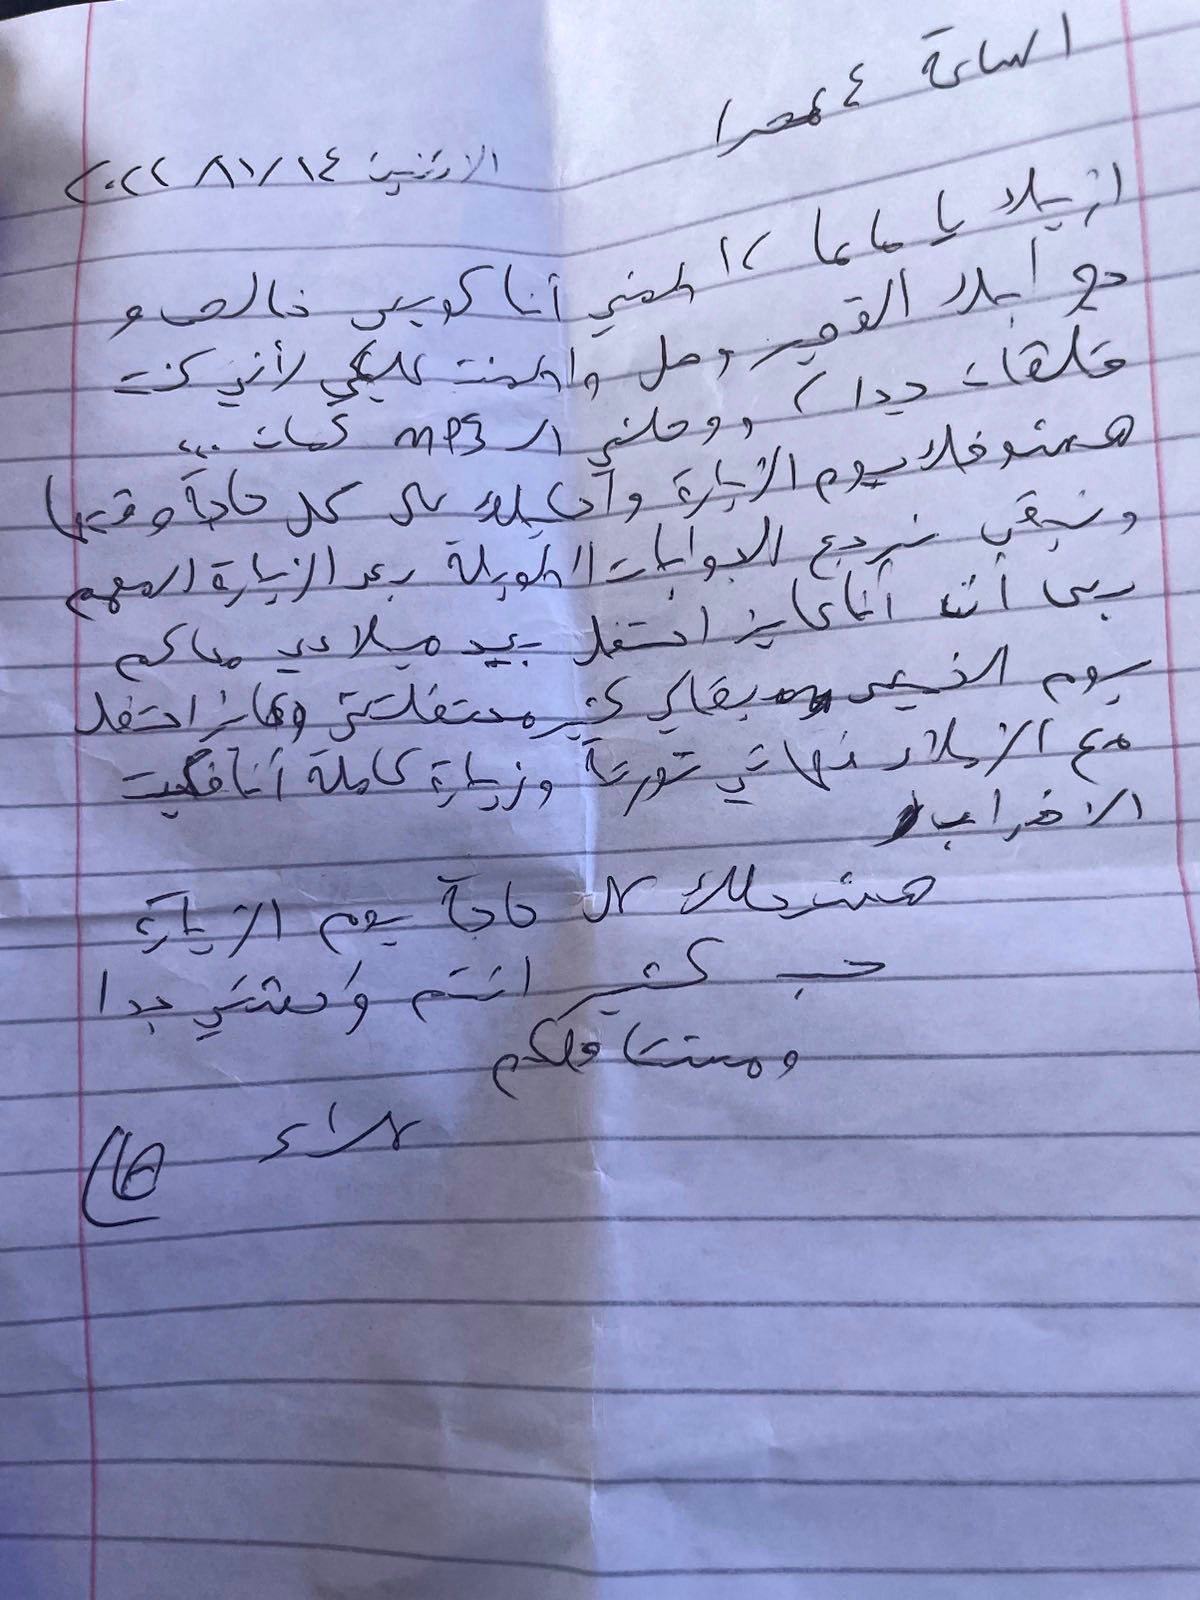 الساعة ٤ عصرا
الاتنين ١١/١٤/ ٢٠٢٢
ازيك يا ماما ؟ اطمني أنا كويس خالص و
جوابك القصير وصل واطمنت عليكي لأني كنت
قلقان جدا، ووصلني الـ MP3 كمان ...
هستوفك يوم الزيارة وأحكيلك على كل حاجة وقتها
ونبقى نرجع للجوابات الطويلة بعد الزيارة المهم
بس أني أنا عايز احتفل بعيد ميلادي معاكم
يوم الخميس بقالي كتير محتفلتش وعايز احتفل
مع الزملاء فهاتي تورتة وزيارة كاملة أنا فكيت
الاضراب
هشرحلك كل حاجة يوم الزيارة
حب كتير انتم وحشتني جدا
ومشتاقلكم
علاء